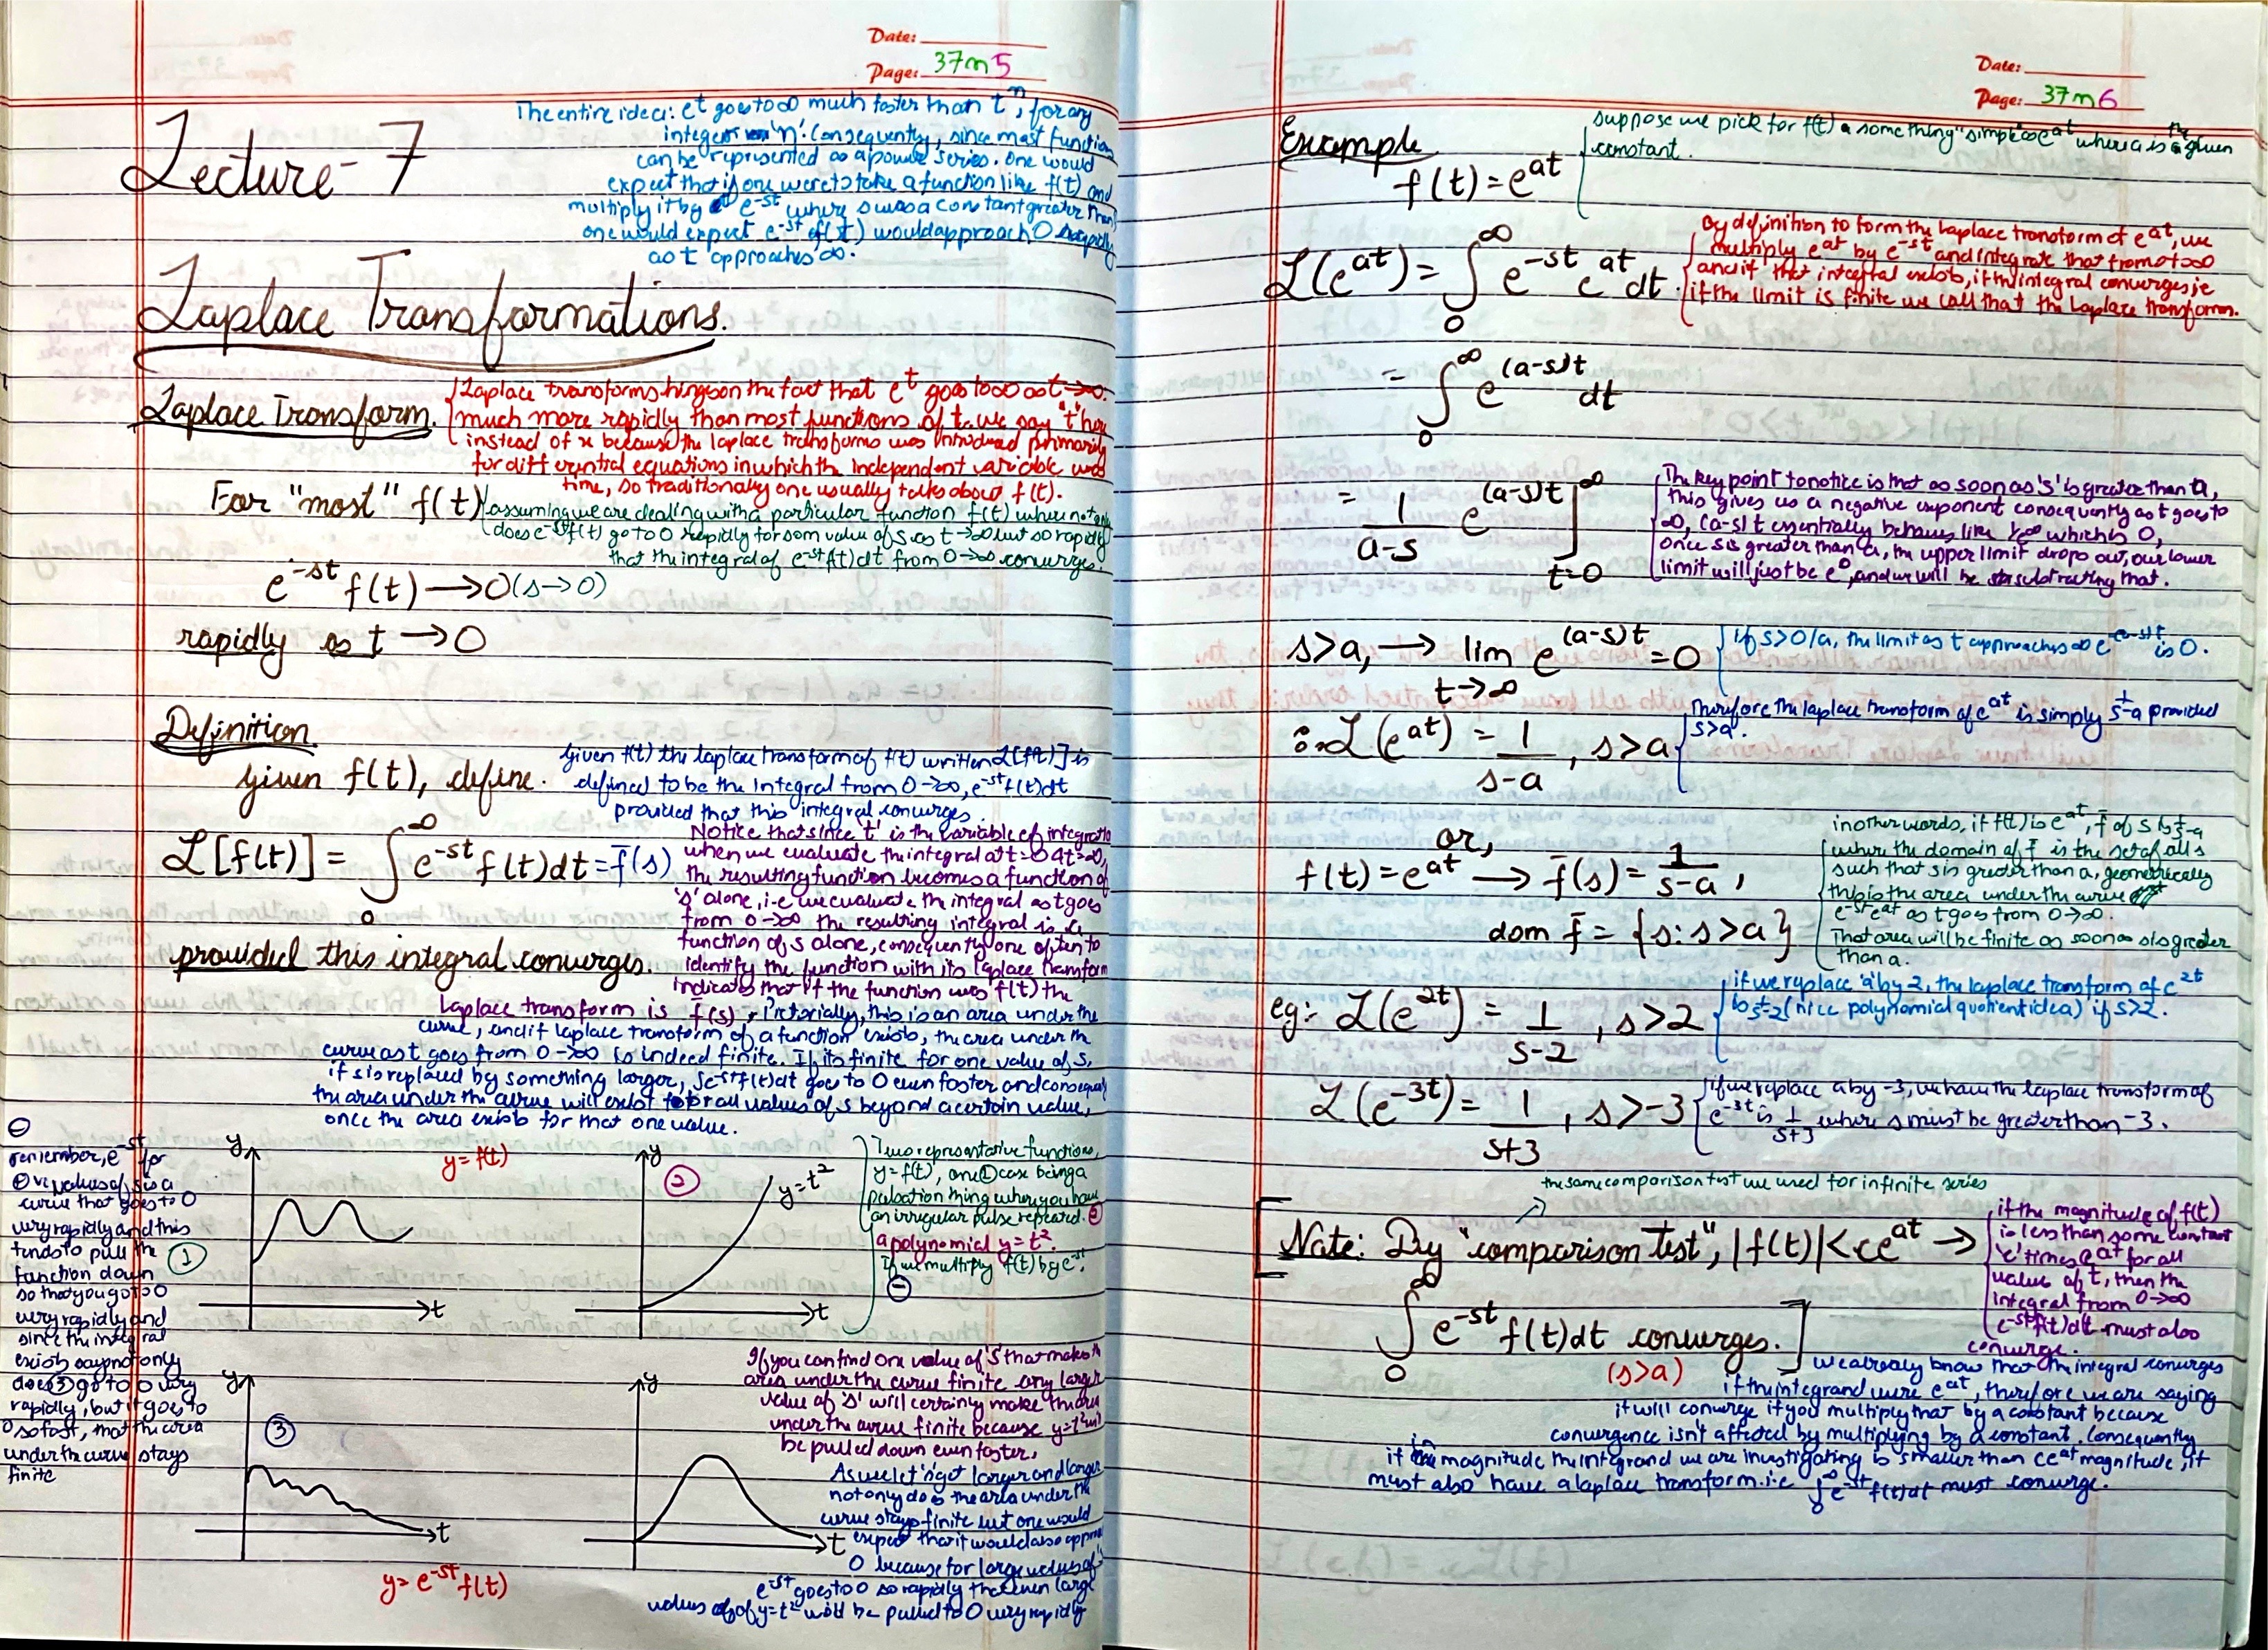 Date:
Page: 37m5
Lecture-7
The entire idea: et goes to ∞ much faster than t^n, for any
integers 'n'. Consequently, since most function
can be represented as a power series. One would
expect that if one were to take a function like f(t) and
multiply it by e^-st where s was a constant greater than
one would expect e^-st f(t) would approach 0 rapidly
as t approaches ∞.
Laplace Transformations.
Laplace Transform.
Laplace transforms hinges on the fact that e^t goes to ∞ as t→∞.
much more rapidly than most functions of t. we say 't' here
instead of x because the laplace transforms was introduced primarily
for differential equations in which the independent variable was
time, so traditionally one usually talks about f(t).
For "most" f(t)
assuming we are dealing with a particular function f(t) where not only
does e^-st f(t) go to 0 rapidly for som value of s as t→∞ but so rapidly
that the integral of e^-st f(t)dt from 0→∞ converges.
e^-st f(t) →0 (s→0)
rapidly as t →0
Definition
Given f(t), define.
Given f(t) the laplace transform of f(t) written L[f(t)] is
defined to be the integral from 0→∞, e^-st f(t)dt
provided that this integral converges.
L[f(t)] = ∫₀^∞ e^-st f(t)dt = f̄(s)
provided this integral converges.
Notice that since 't' is the variable of integratio
when we evaluate the integral at t=0 & t=∞,
the resulting function becomes a function of
's' alone, i.e we evaluate the integral as t goes
from 0→∞ the resulting integral is a
function of s alone, consequently one often to
identify the function with its laplace transform
indicates that if the function was f(t) the
Laplace transform is f̄(s). Pictorially, this is an area under the
curve, and if laplace transform of a function exists, the area under the
curve as t goes from 0→∞ is indeed finite. If its finite for one value of s,
if s is replaced by something larger, ∫e^-st f(t)dt goes to 0 even faster and consequ
the area under the curve will exist for all values of s beyond a certain value,
once the area exists for that one value.
remember, e^-st for
⊕ve values of s is a
curve that goes to 0
very rapidly and this
tends to pull the
function down
so that you go to 0
very rapidly and
since the integral
exists say not only
does ③ go to 0 very
rapidly, but it goes to
0 so fast, that the area
under the curve stays
finite
y
y=f(t)
①
t
y
②
y=t²
t
Two representative functions,
y=f(t), one ① case being a
pulsation thing where you have
an irregular pulse repeated. ②
a polynomial y=t².
If we multiply f(t) by e^-st.
y
③
t
y=e^-st f(t)
y
t
If you can find one value of 's' that makes th
area under the curve finite any larger
value of 's' will certainly make the area
under the curve finite because y=t² will
be pulled down even faster.
As we let 's' get larger and larger
not only does the area under the
curve stays finite but one would
expect that it would also appro
0 because for large values of s
e^-st goes to 0 so rapidly that even large
values of y=t² would be pulled to 0 very rapidly
Date:
Page: 37m6
Example
suppose we pick for f(t) a something "simple" as e^at where a is a given
constant.
f(t) = e^at
L(e^at) = ∫₀^∞ e^-st e^at dt.
By definition to form the laplace transform of e^at, we
multiply e^at by e^-st and integrate that from 0 to ∞
and if that integral exists, if the integral converges ie
if the limit is finite we call that the Laplace transform.
= ∫₀^∞ e^(a-s)t dt
= 1/(a-s) e^(a-s)t ]^∞ t=0
The key point to notice is that as soon as 's' is greater than a,
this gives us a negative exponent consequently as t goes to
∞, (a-s)t essentially behaves like 1/e^∞ which is 0,
once s is greater than a, the upper limit drops out, our lower
limit will just be e^0, and we will be subtracting that.
s>a, → lim t→∞ e^(a-s)t = 0
if s>0/a, the limit as t approaches ∞ e^(a-s)t is 0.
∴ L(e^at) = 1/(s-a), s>a
Therefore the laplace transform of e^at is simply 1/s-a provided
s>a.
or,
f(t) = e^at → f̄(s) = 1/(s-a),
dom f̄ = {s: s>a}
in other words, if f(t) is e^at, f̄ of s is 1/s-a
where the domain of f̄ is the set of all s
such that s is greater than a, geometrically
this is the area under the curve
e^-st e^at as t goes from 0→∞.
That area will be finite as soon as s is greater
than a.
eg:- L(e^2t) = 1/(s-2), s>2
if we replace 'a' by 2, the laplace transform of e^2t
is 1/s-2 (nice polynomial quotient idea) if s>2.
L(e^-3t) = 1/(s+3), s>-3
if we replace a by -3, we have the laplace transform of
e^-3t is 1/(s+3) where s must be greater than -3.
the same comparison test we used for infinite series
[Note: By "comparison test", |f(t)|<ce^at →
∫₀^∞ e^-st f(t)dt converges.]
(s>a)
if the magnitude of f(t)
is less than some constant
'c' times e^at for all
value of t, then the
integral from 0→∞
e^-st f(t)dt must also
converge.
we already know that the integral converges
if the integrand were e^at, therefore we are saying
it will converge if you multiply that by a constant because
convergence isn't affected by multiplying by a constant. Consequently
if in magnitude the integrand we are investigating is smaller than ce^at magnitude, it
must also have a laplace transform. i.e ∫₀^∞ e^-st f(t)dt must converge.